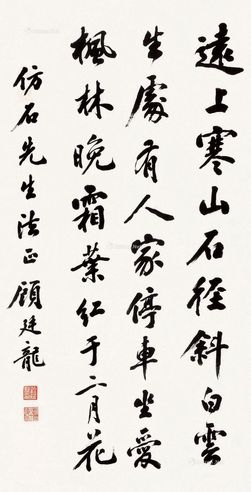 遠上寒山石徑斜白雲
生處有人家停車坐愛
楓林晚霜葉紅于二月花
仿石先生法正顧廷龍